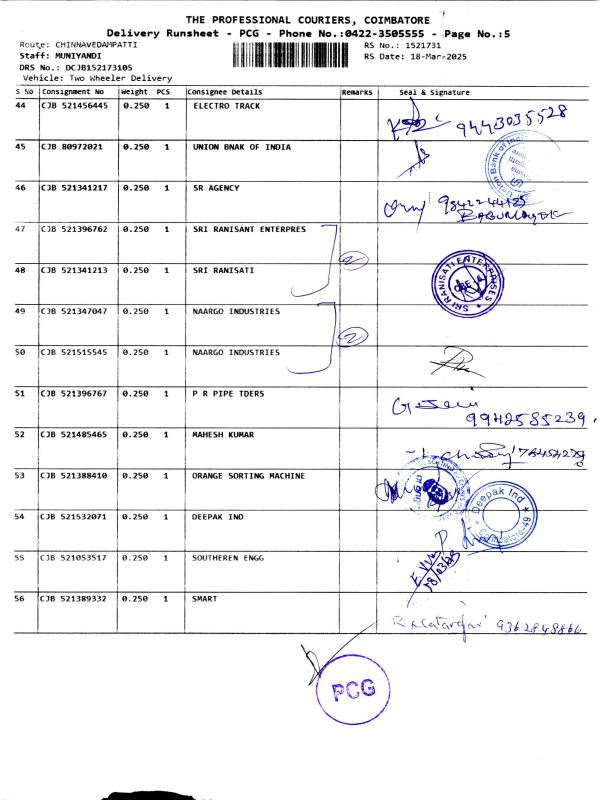 THE PROFESSIONAL COURIERS, COIMBATORE
Delivery Runsheet - PCG - Phone No.:0422-3505555 - Page No.:5
Route: CHINNAVEDAMPATTI RS No.: 1521731
Staff: MUNIYANDI RS Date: 18-Mar-2025
DRS No.: DCJB152173105
Vehicle: Two Wheeler Delivery
S No Consignment No Weight PCS Consignee Details Remarks Seal & Signature
44 CJB 521456445 0.250 1 ELECTRO TRACK 9443035528
45 CJB 80972021 0.250 1 UNION BNAK OF INDIA
46 CJB 521341217 0.250 1 SR AGENCY
47 CJB 521396762 0.250 1 SRI RANISANT ENTERPRES 2
48 CJB 521341213 0.250 1 SRI RANISATI SRI RANISATI ENTERPRISES CBE
49 CJB 521347047 0.250 1 NAARGO INDUSTRIES 2
50 CJB 521515545 0.250 1 NAARGO INDUSTRIES
51 CJB 521396767 0.250 1 P R PIPE TDERS 9942585239
52 CJB 521485465 0.250 1 MAHESH KUMAR
53 CJB 521388410 0.250 1 ORANGE SORTING MACHINE
54 CJB 521532071 0.250 1 DEEPAK IND Deepak Ind Coimbatore-49
55 CJB 521053517 0.250 1 SOUTHEREN ENGG
56 CJB 521389332 0.250 1 SMART
PCG